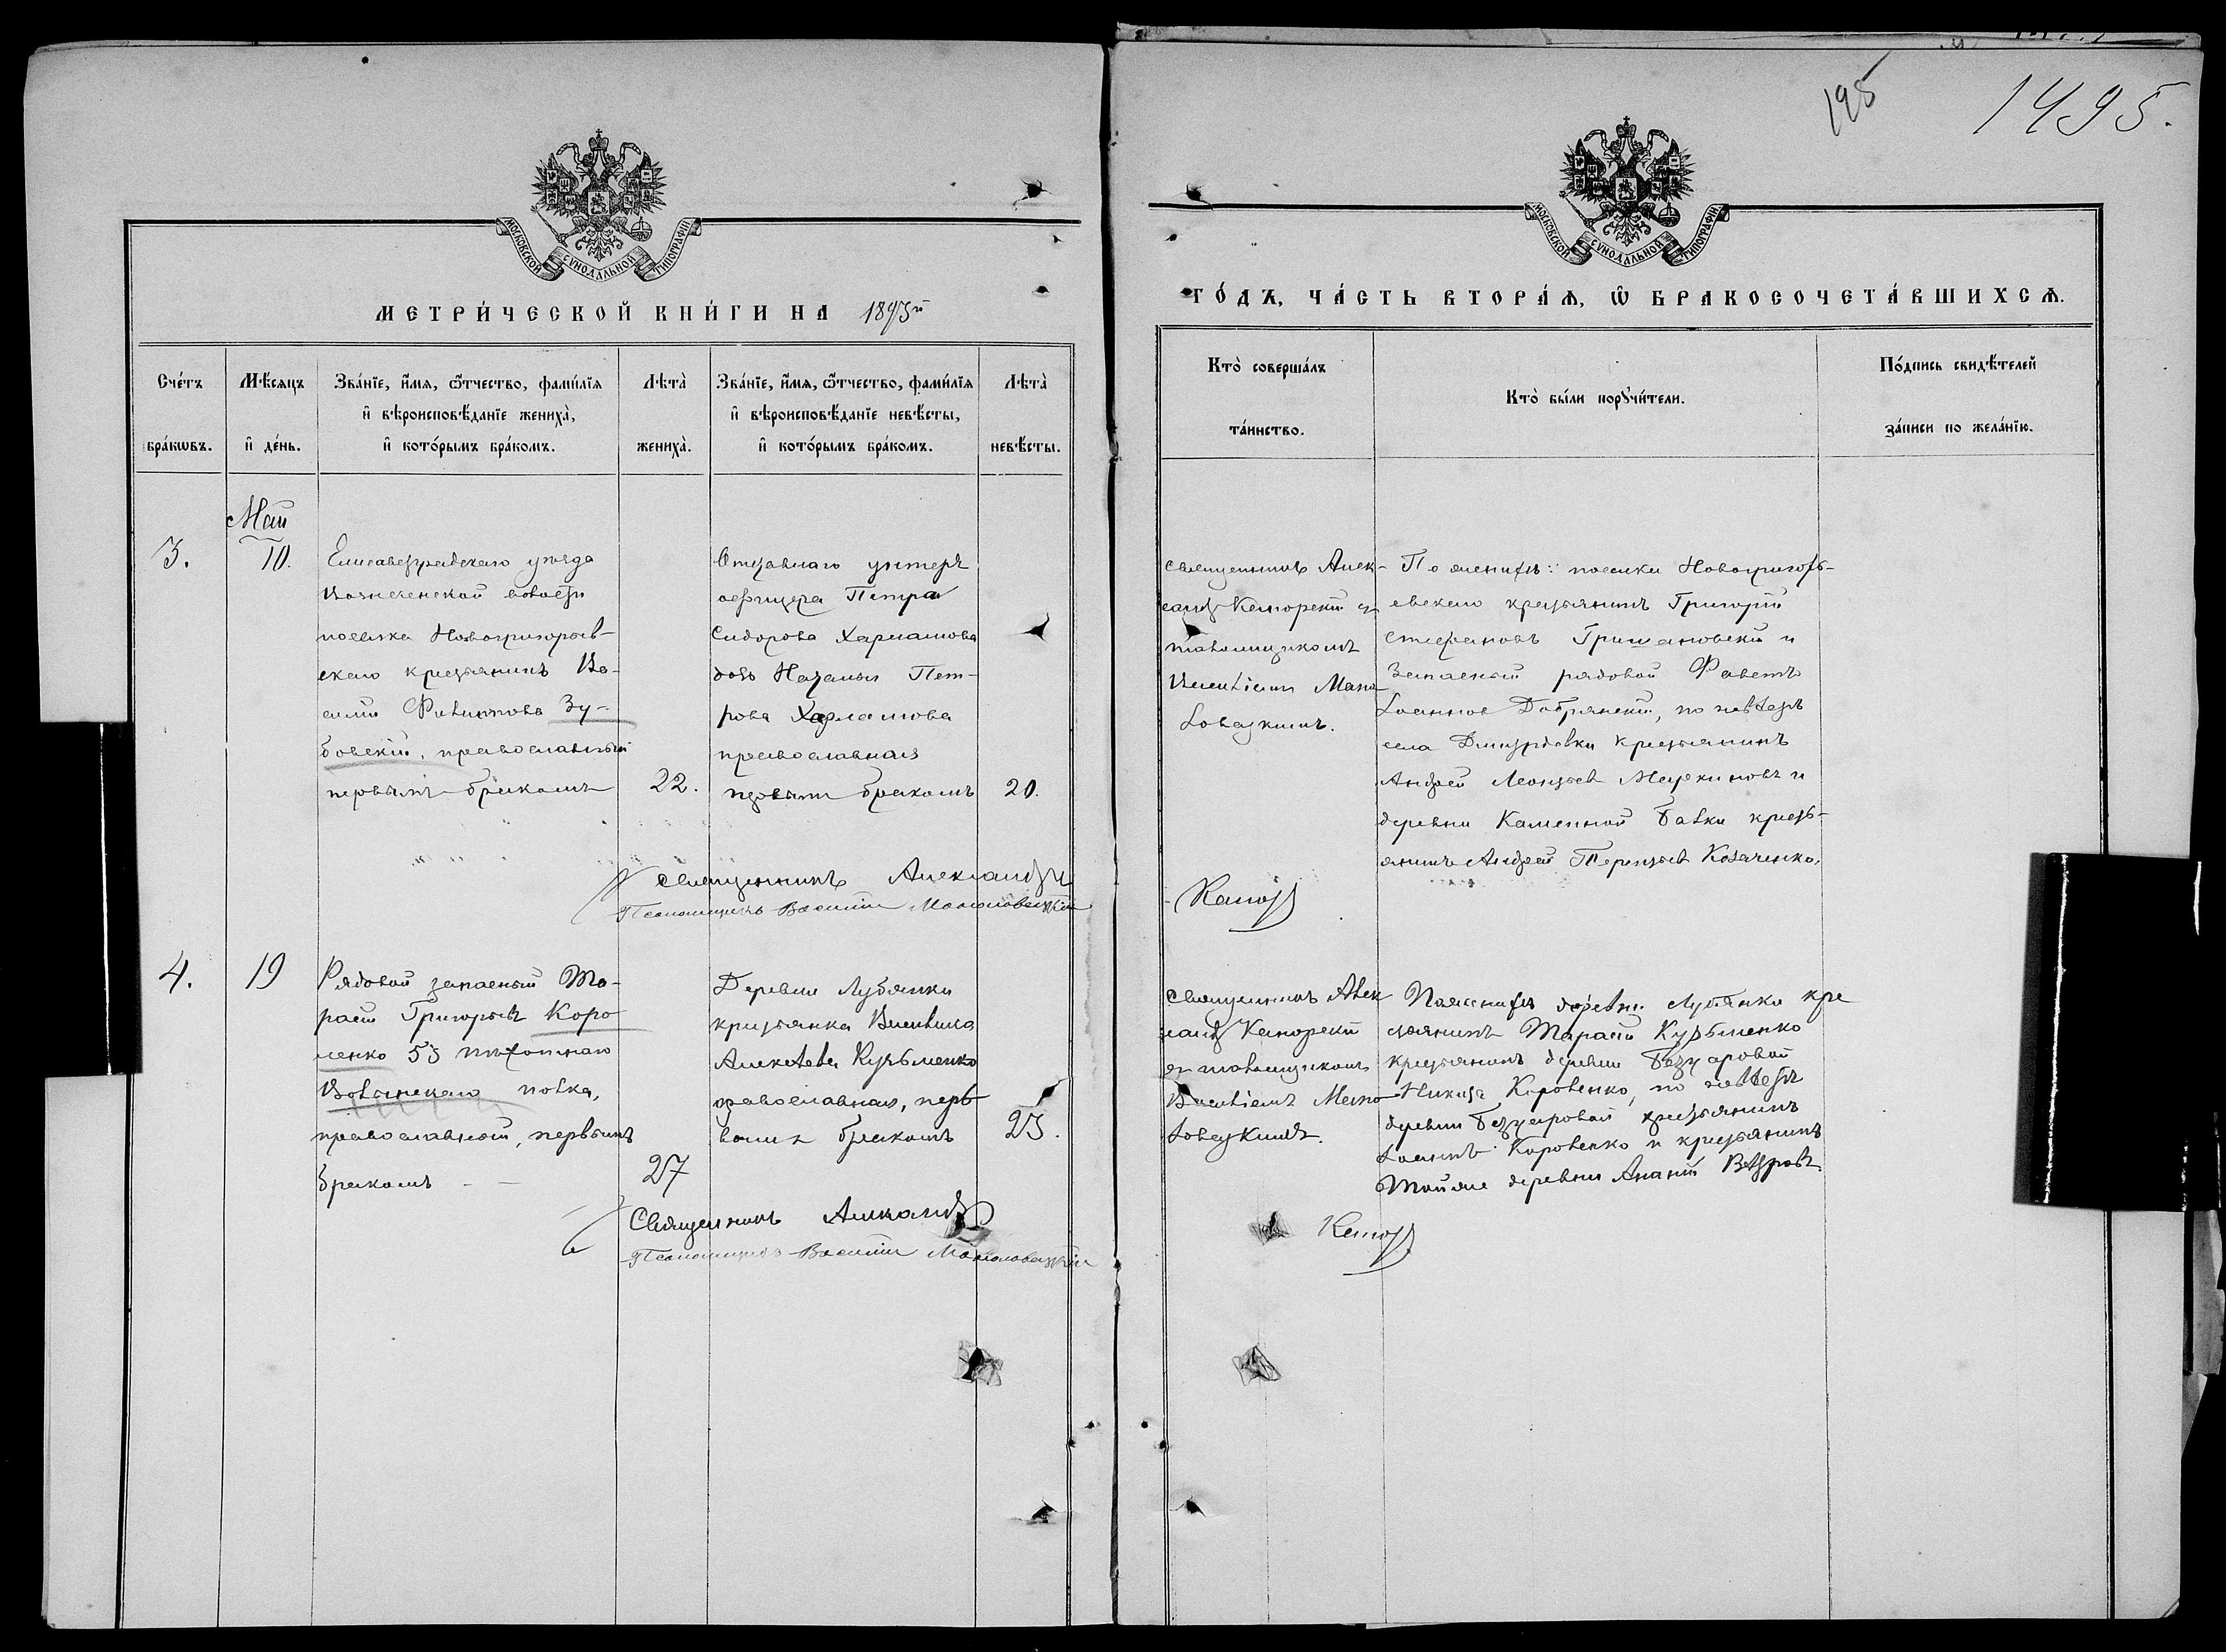 195
1495.
МОСКОВСКОЙ СѴНОДАЛЬНОЙ ТИПОГРАФІИ
МОСКОВСКОЙ СѴНОДАЛЬНОЙ ТИПОГРАФІИ
МЕТРИ́ЧЕСКОЙ КНИ́ГИ НА
ГО́ДЪ, ЧА́СТЬ ВТОРА́Я, Ѿ БРАКОСОЧЕТА́ВШИХСЯ.
Сче́тъ бра́кωвъ.
Мѣ́сяцъ и҆ де́нь.
Зва́нїе, и҆́мя, ѻ҆́тчество, фами́лїя и҆ вѣроисповѣ́данїе жениха̀, и҆ кото́рымъ бра́комъ.
Лѣта̀ жениха̀.
Зва́нїе, и҆́мя, ѻ҆́тчество, фами́лїя и҆ вѣроисповѣ́данїе невѣ́сты, и҆ кото́рымъ бра́комъ.
Лѣта̀ невѣ́сты.
Кто̀ соверша́лъ та́инство.
Кто̀ бы́ли порꙋчи́тели.
По́дпись свидѣ́телей за́писи по жела́нїю.
Май
3.
10.
Елисаветградскаго уѣзда
Вознесенской волости
поселка Новогригорьев-
скаго крестьянинъ Ва-
силій Филипповъ Зу-
бовскій, православный
первымъ бракомъ
22.
Отставнаго унтеръ
офицера Петра
Сидорова Харламова
дочь Наталья Пет-
рова Харламова
православная
первымъ бракомъ
20.
Священникъ Алек-
сандръ съ
псаломщикомъ
Василіемъ
По женихѣ: поселка Новогригорь-
евскаго крестьянинъ Григорій
Стефановъ Гришановскій и
Запасный рядовой Павелъ
Іоанновъ Добрянскій, по невѣстѣ
села Дмитровки крестьянинъ
Андрей Леонтьевъ и
деревни Каменной Балки кресть-
янинъ Андрей Терентьевъ Козаченко.
Священникъ Александръ
Псаломщикъ Василій
4.
19
Рядовой запасный Та-
расій Григорьевъ Коро
ленко 53 пѣхотнаго
Волынскаго полка,
православный, первымъ
бракомъ
27
Деревни Лубянки
крестьянка Василиса
Алексѣева Кузьменко
православная, пер-
вымъ бракомъ
23.
Священникъ Алек
сандръ
съ псаломщикомъ
Василіемъ
По женихѣ деревни Лубянки кре
стьянинъ Тарасій Кузьменко
крестьянинъ деревни
Никита Короленко, по невѣстѣ
деревни крестьянинъ
Іоаннъ Короленко и крестьянинъ
той же деревни Ананій Вѣтровъ.
Священникъ Александръ
Псаломщикъ Василій